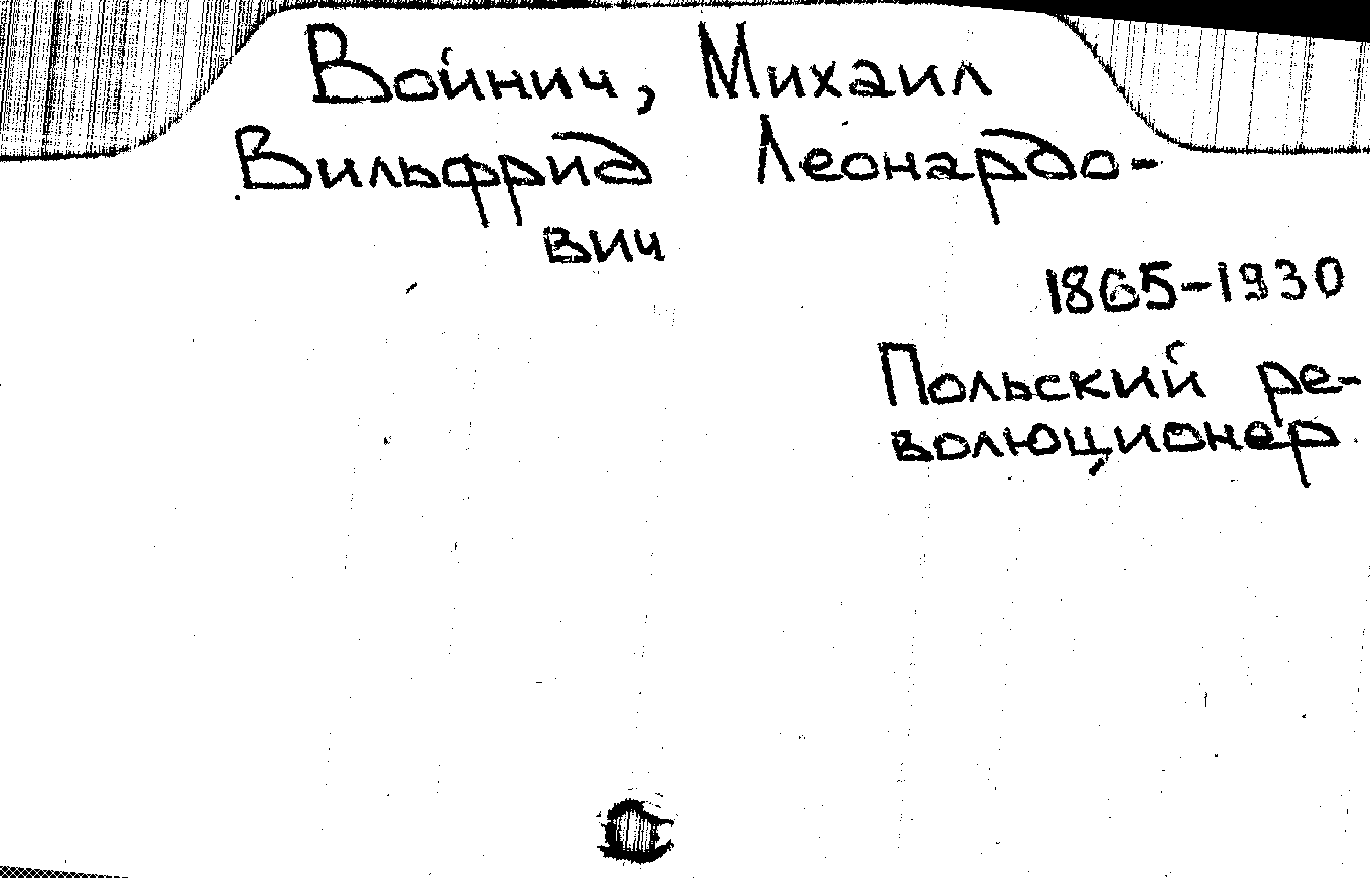 Войнич, Михаил
Вильфрид Леонардо-
вич
1865-1930
Польский ре-
волюционер